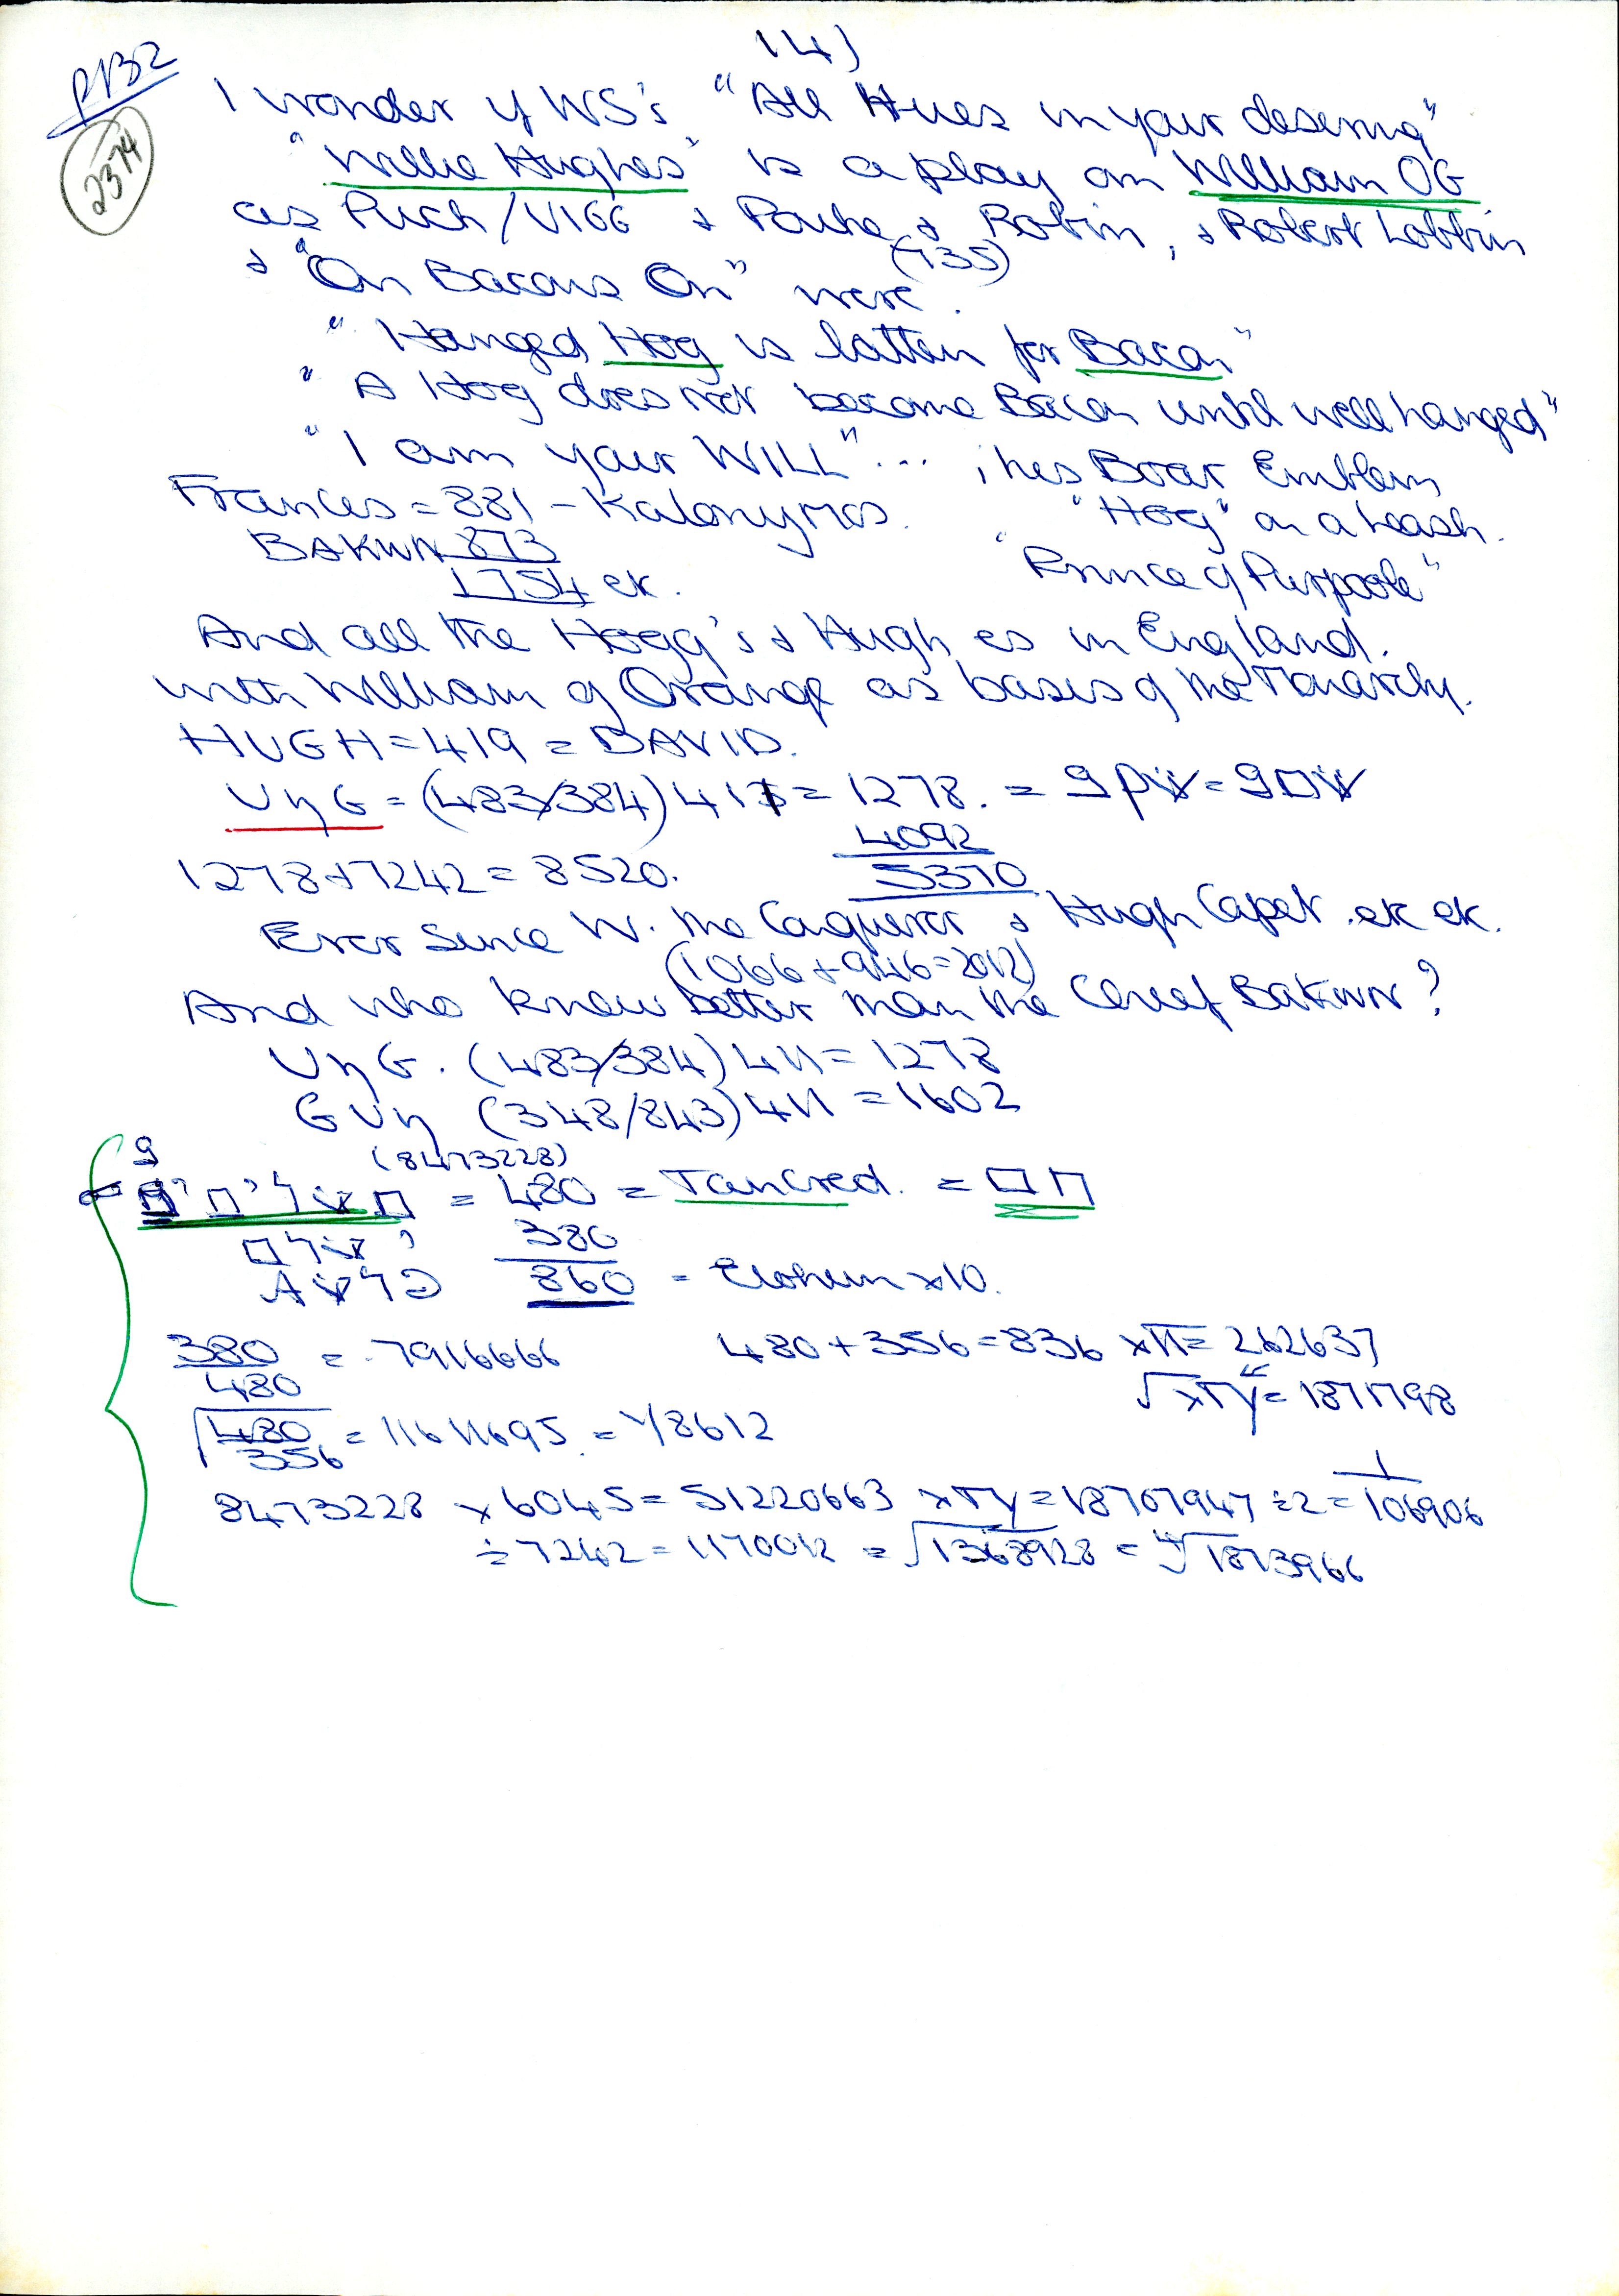 14)
PB2
2374
I wonder if WS's "All Hues in your deserving"
"Willie Hughes" is a play on William OG
as Puck/VIGG & Pouke & Robin, & Robert Lobbin
& "On Bacons On" were. (735)
"Hanged Hog is latten for Bacon"
"A Hog does not become Bacon until well hanged"
"I am your WILL"... ; his Boar Emblem
Frances = 881 - Kalonymos. "Hog" on a leash.
BAKWN 873 "Prince of Purpoole"
1754 ek.
And all the Hogg's & Hugh es in England.
with William of Orange as basis of the Monarchy.
HUGH = 419 = DAVID.
= 1278. =
4092
1278+7242 = 8520. 5370
Ever since W. the Conquerer & Hugh Capet. ek ek.
(1066+946=2012)
And who knew better than the Chief BAKWN?
(483/384) 411 = 1278
(348/843) 411 = 1602
9 (8473228)
= 480 = Tancred. =
380
860 = Elohim x10.
380 = .7916666 480+356=836 xπ= 262637
480 = 1871798
√480 = 11611695 = 1/8612
356
8473228 x 6045 = 51220663 = 18707947 ÷2 = 1
106906
÷7242 = 1170012 = √1368928 = ∜1873966